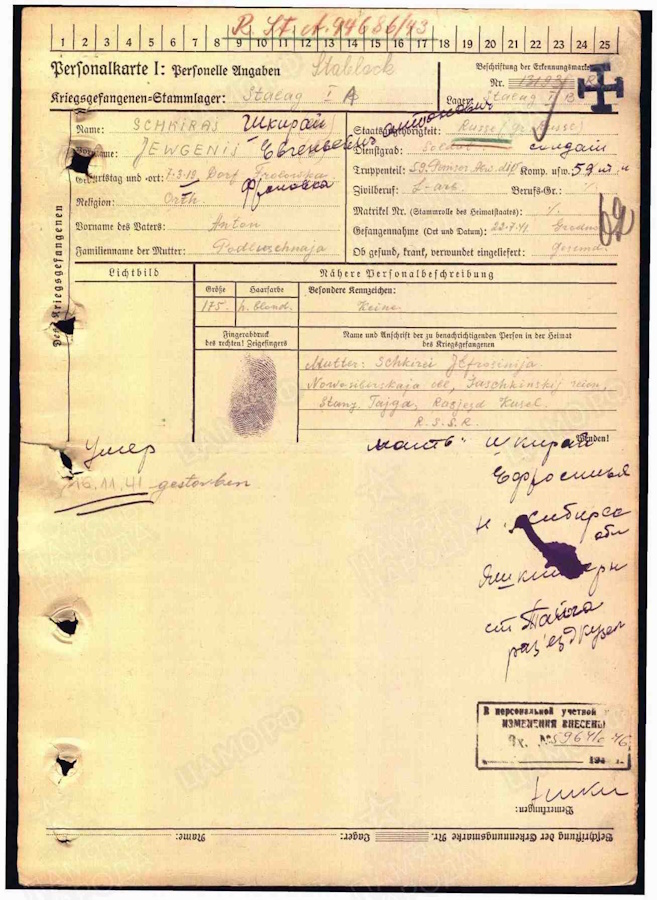 R. St. A. 94686/43
1 2 3 4 5 6 7 8 9 10 11 12 13 14 15 16 17 18 19 20 21 22 23 24 25
Personalkarte I: Personelle Angaben
Stablack
Beschriftung der Erkennungsmarke
Nr.
Kriegsgefangenen-Stammlager: Stalag I A
Lager: Stalag I B
Des Kriegsgefangenen
Name: SCHKIRAJ Шкирай
Антонович
Staatsangehörigkeit: Russe
Vorname: JEWGENIJ Евгений
Dienstgrad: Soldat солдат
Geburtstag und -ort: 7.3.19 Dorf Frolowka Фроловка
Truppenteil: 59. Komp. usw.
Religion: Orth.
Zivilberuf: Berufs-Gr.:
Matrikel Nr. (Stammrolle des Heimatstaates)
Vorname des Vaters: Anton
Gefangennahme (Ort und Datum): 22.7.41 Grodno
62
Familienname der Mutter: Podluschnaja
Ob gesund, krank, verwundet eingeliefert: Gesund
Lichtbild
Nähere Personalbeschreibung
Größe Haarfarbe Besondere Kennzeichen:
175 h. blond. Keine
Fingerabdruck des rechten! Zeigefingers
Name und Anschrift der zu benachrichtigenden Person in der Heimat des Kriegsgefangenen
Mutter: Schkirei Jefrosinija
Nowosiberskaja obl, Jaschkinskij reion,
Stanz. Tajga, Rasjesd Kusel
R.S.S.R.
Wenden!
Умер
16.11.41 gestorben
мать: Шкирай
Ефросинья
Н. Сибирск
обл
ст Тайга
раз'езд кузел
В персональный учетной
ИЗМЕНЕНИЯ ВНЕСЕНЫ
194 г.
Bemerkungen:
Beschriftung der Erkennungsmarke Nr. Lager: Name:
ЦАМО РФ